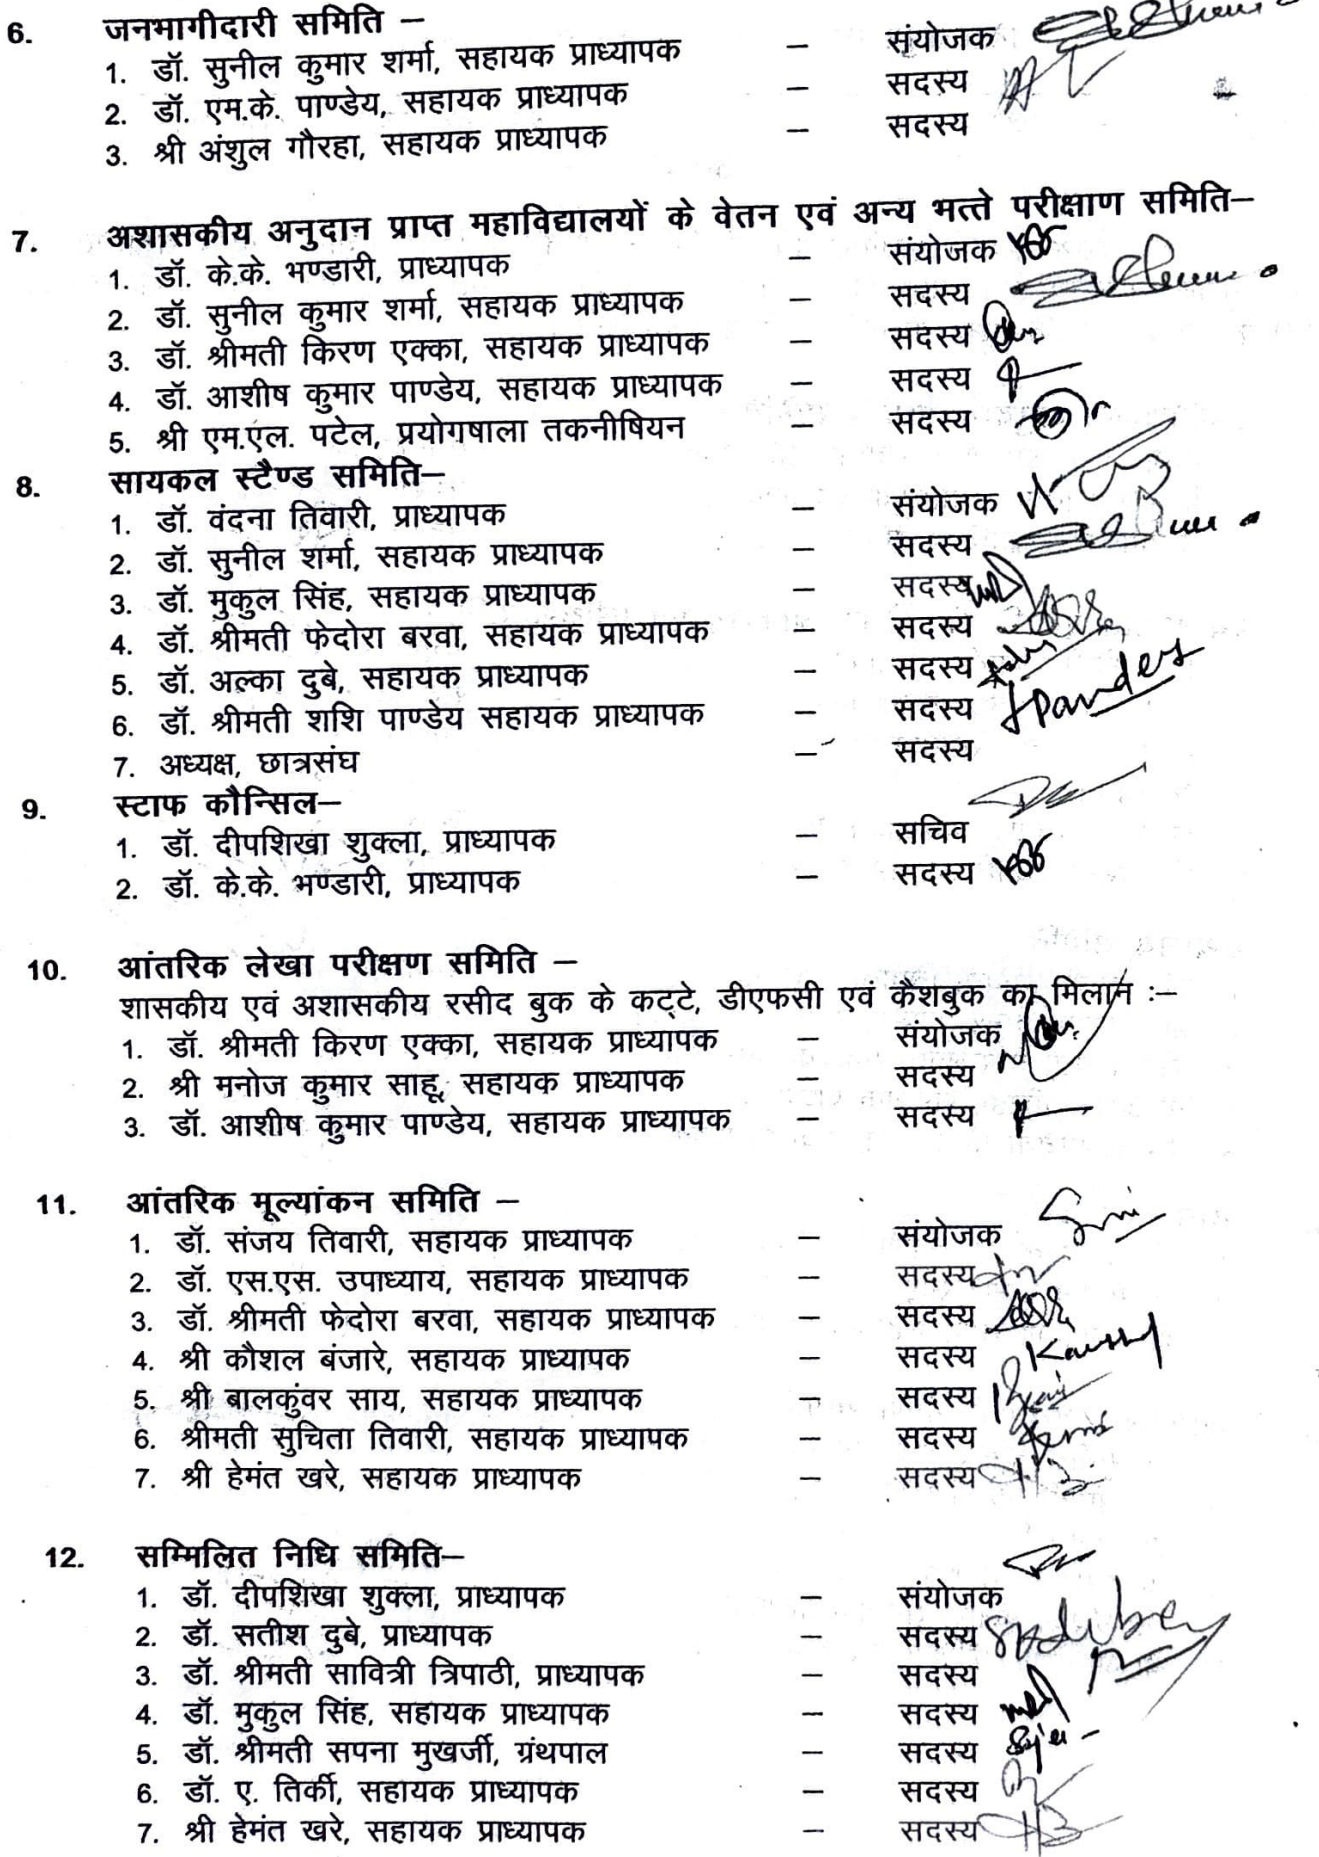 6. जनभागीदारी समिति –
1. डॉ. सुनील कुमार शर्मा, सहायक प्राध्यापक – संयोजक
2. डॉ. एम.के. पाण्डेय, सहायक प्राध्यापक – सदस्य
3. श्री अंशुल गौरहा, सहायक प्राध्यापक – सदस्य
7. अशासकीय अनुदान प्राप्त महाविद्यालयों के वेतन एवं अन्य भत्ते परीक्षाण समिति–
1. डॉ. के.के. भण्डारी, प्राध्यापक – संयोजक
2. डॉ. सुनील कुमार शर्मा, सहायक प्राध्यापक – सदस्य
3. डॉ. श्रीमती किरण एक्का, सहायक प्राध्यापक – सदस्य
4. डॉ. आशीष कुमार पाण्डेय, सहायक प्राध्यापक – सदस्य
5. श्री एम.एल. पटेल, प्रयोगषाला तकनीषियन – सदस्य
8. सायकल स्टैण्ड समिति–
1. डॉ. वंदना तिवारी, प्राध्यापक – संयोजक
2. डॉ. सुनील शर्मा, सहायक प्राध्यापक – सदस्य
3. डॉ. मुकुल सिंह, सहायक प्राध्यापक – सदस्य
4. डॉ. श्रीमती फेदोरा बरवा, सहायक प्राध्यापक – सदस्य
5. डॉ. अल्का दुबे, सहायक प्राध्यापक – सदस्य
6. डॉ. श्रीमती शशि पाण्डेय सहायक प्राध्यापक – सदस्य
7. अध्यक्ष, छात्रसंघ – सदस्य
9. स्टाफ कौन्सिल–
1. डॉ. दीपशिखा शुक्ला, प्राध्यापक – सचिव
2. डॉ. के.के. भण्डारी, प्राध्यापक – सदस्य
10. आंतरिक लेखा परीक्षण समिति –
शासकीय एवं अशासकीय रसीद बुक के कट्टे, डीएफसी एवं कैशबुक का मिलान :–
1. डॉ. श्रीमती किरण एक्का, सहायक प्राध्यापक – संयोजक
2. श्री मनोज कुमार साहू, सहायक प्राध्यापक – सदस्य
3. डॉ. आशीष कुमार पाण्डेय, सहायक प्राध्यापक – सदस्य
11. आंतरिक मूल्यांकन समिति –
1. डॉ. संजय तिवारी, सहायक प्राध्यापक – संयोजक
2. डॉ. एस.एस. उपाध्याय, सहायक प्राध्यापक – सदस्य
3. डॉ. श्रीमती फेदोरा बरवा, सहायक प्राध्यापक – सदस्य
4. श्री कौशल बंजारे, सहायक प्राध्यापक – सदस्य
5. श्री बालकुंवर साय, सहायक प्राध्यापक – सदस्य
6. श्रीमती सुचिता तिवारी, सहायक प्राध्यापक – सदस्य
7. श्री हेमंत खरे, सहायक प्राध्यापक – सदस्य
12. सम्मिलित निधि समिति–
1. डॉ. दीपशिखा शुक्ला, प्राध्यापक – संयोजक
2. डॉ. सतीश दुबे, प्राध्यापक – सदस्य
3. डॉ. श्रीमती सावित्री त्रिपाठी, प्राध्यापक – सदस्य
4. डॉ. मुकुल सिंह, सहायक प्राध्यापक – सदस्य
5. डॉ. श्रीमती सपना मुखर्जी, ग्रंथपाल – सदस्य
6. डॉ. ए. तिर्की, सहायक प्राध्यापक – सदस्य
7. श्री हेमंत खरे, सहायक प्राध्यापक – सदस्य